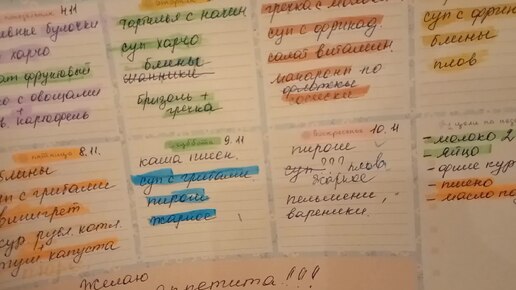 понедельник 4.11
булочки
харчо
фруктовый
с овощами
+
картофель
вторник
тортилья с начин
суп харчо
блины
шанишки
бризоль +
гречка
гречка с молок
суп с фрикад.
салат витамин.
макароны по
флотски
сосиски
суп с фрикад
блины
плов
пятница 8.11.
блины
суп с грибами
винегрет
рубл. котл.
+
туш капуста
суббота 9.11
каша пшен.
суп с грибами
пироги
жаркое
воскресенье 10.11
пироги
суп ??? плова
жаркое
пельмени,
вареники.
- молоко 2
- яйцо
- филе кур
- пшено
- масло
Желаю
аппетита !!!